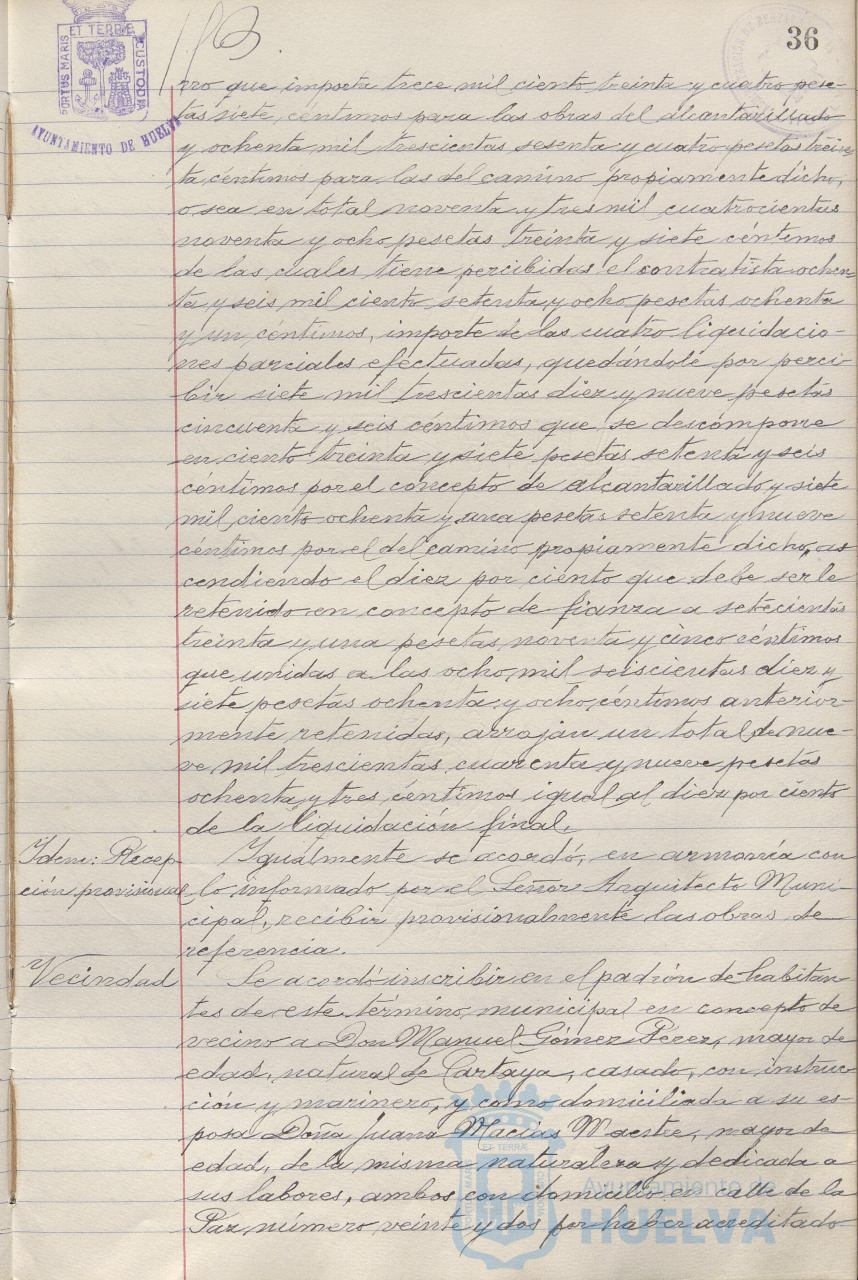 36
PORTUS MARIS ET TERRÆ CUSTODIA
AYUNTAMIENTO DE HUELVA
rro que importa trece mil ciento treinta y cuatro pese-
tas siete céntimos para las obras del alcantarillado
y ochenta mil trescientas sesenta y cuatro pesetas trein-
ta céntimos para las del camino propiamente dicho,
o sea en total noventa y tres mil cuatrocientas
noventa y ocho pesetas treinta y siete céntimos
de las cuales tiene percibidas el contratista ochen-
ta y seis mil ciento setenta y ocho pesetas ochenta
y un céntimos, importe de las cuatro liquidacio-
nes parciales efectuadas, quedándole por perci-
bir siete mil trescientas diez y nueve pesetas
cincuenta y seis céntimos que se descompone
en ciento treinta y siete pesetas setenta y seis
centimos por el concepto de alcantarillado y siete
mil ciento ochenta y una pesetas setenta y nueve
céntimos por el del camino propiamente dicho, as
cendiendo el diez por ciento que debe serle
retenido en concepto de fianza a setecientas
treinta y una pesetas noventa y cinco céntimos
que unidas a las ocho mil seiscientas diez y
siete pesetas ochenta y ocho céntimos anterior-
mente retenidas, arrojan un total de nue-
ve mil trescientas cuarenta y nueve pesetas
ochenta y tres céntimos igual al diez por ciento
de la liquidación final.
Idem: Recep
ción provisional
Igualmente se acordó, en armonía con
lo informado por el Señor Arquitecto Muni-
cipal, recibir provisionalmente las obras de
referencia.
Vecindad
Se acordó inscribir en el padrón de habitan-
tes de este término municipal en concepto de
vecino a Don Manuel Gómez Pérez, mayor de
edad, natural de Cartaya, casado, con instruc-
ción y marinero, y como domiciliada a su es-
posa Doña Juana Macias Maestre, mayor de
edad, de la misma naturaleza y dedicada a
sus labores, ambos con domicilio en calle de la
Paz número veinte y dos por haber acreditado
Ayuntamiento de
HUELVA